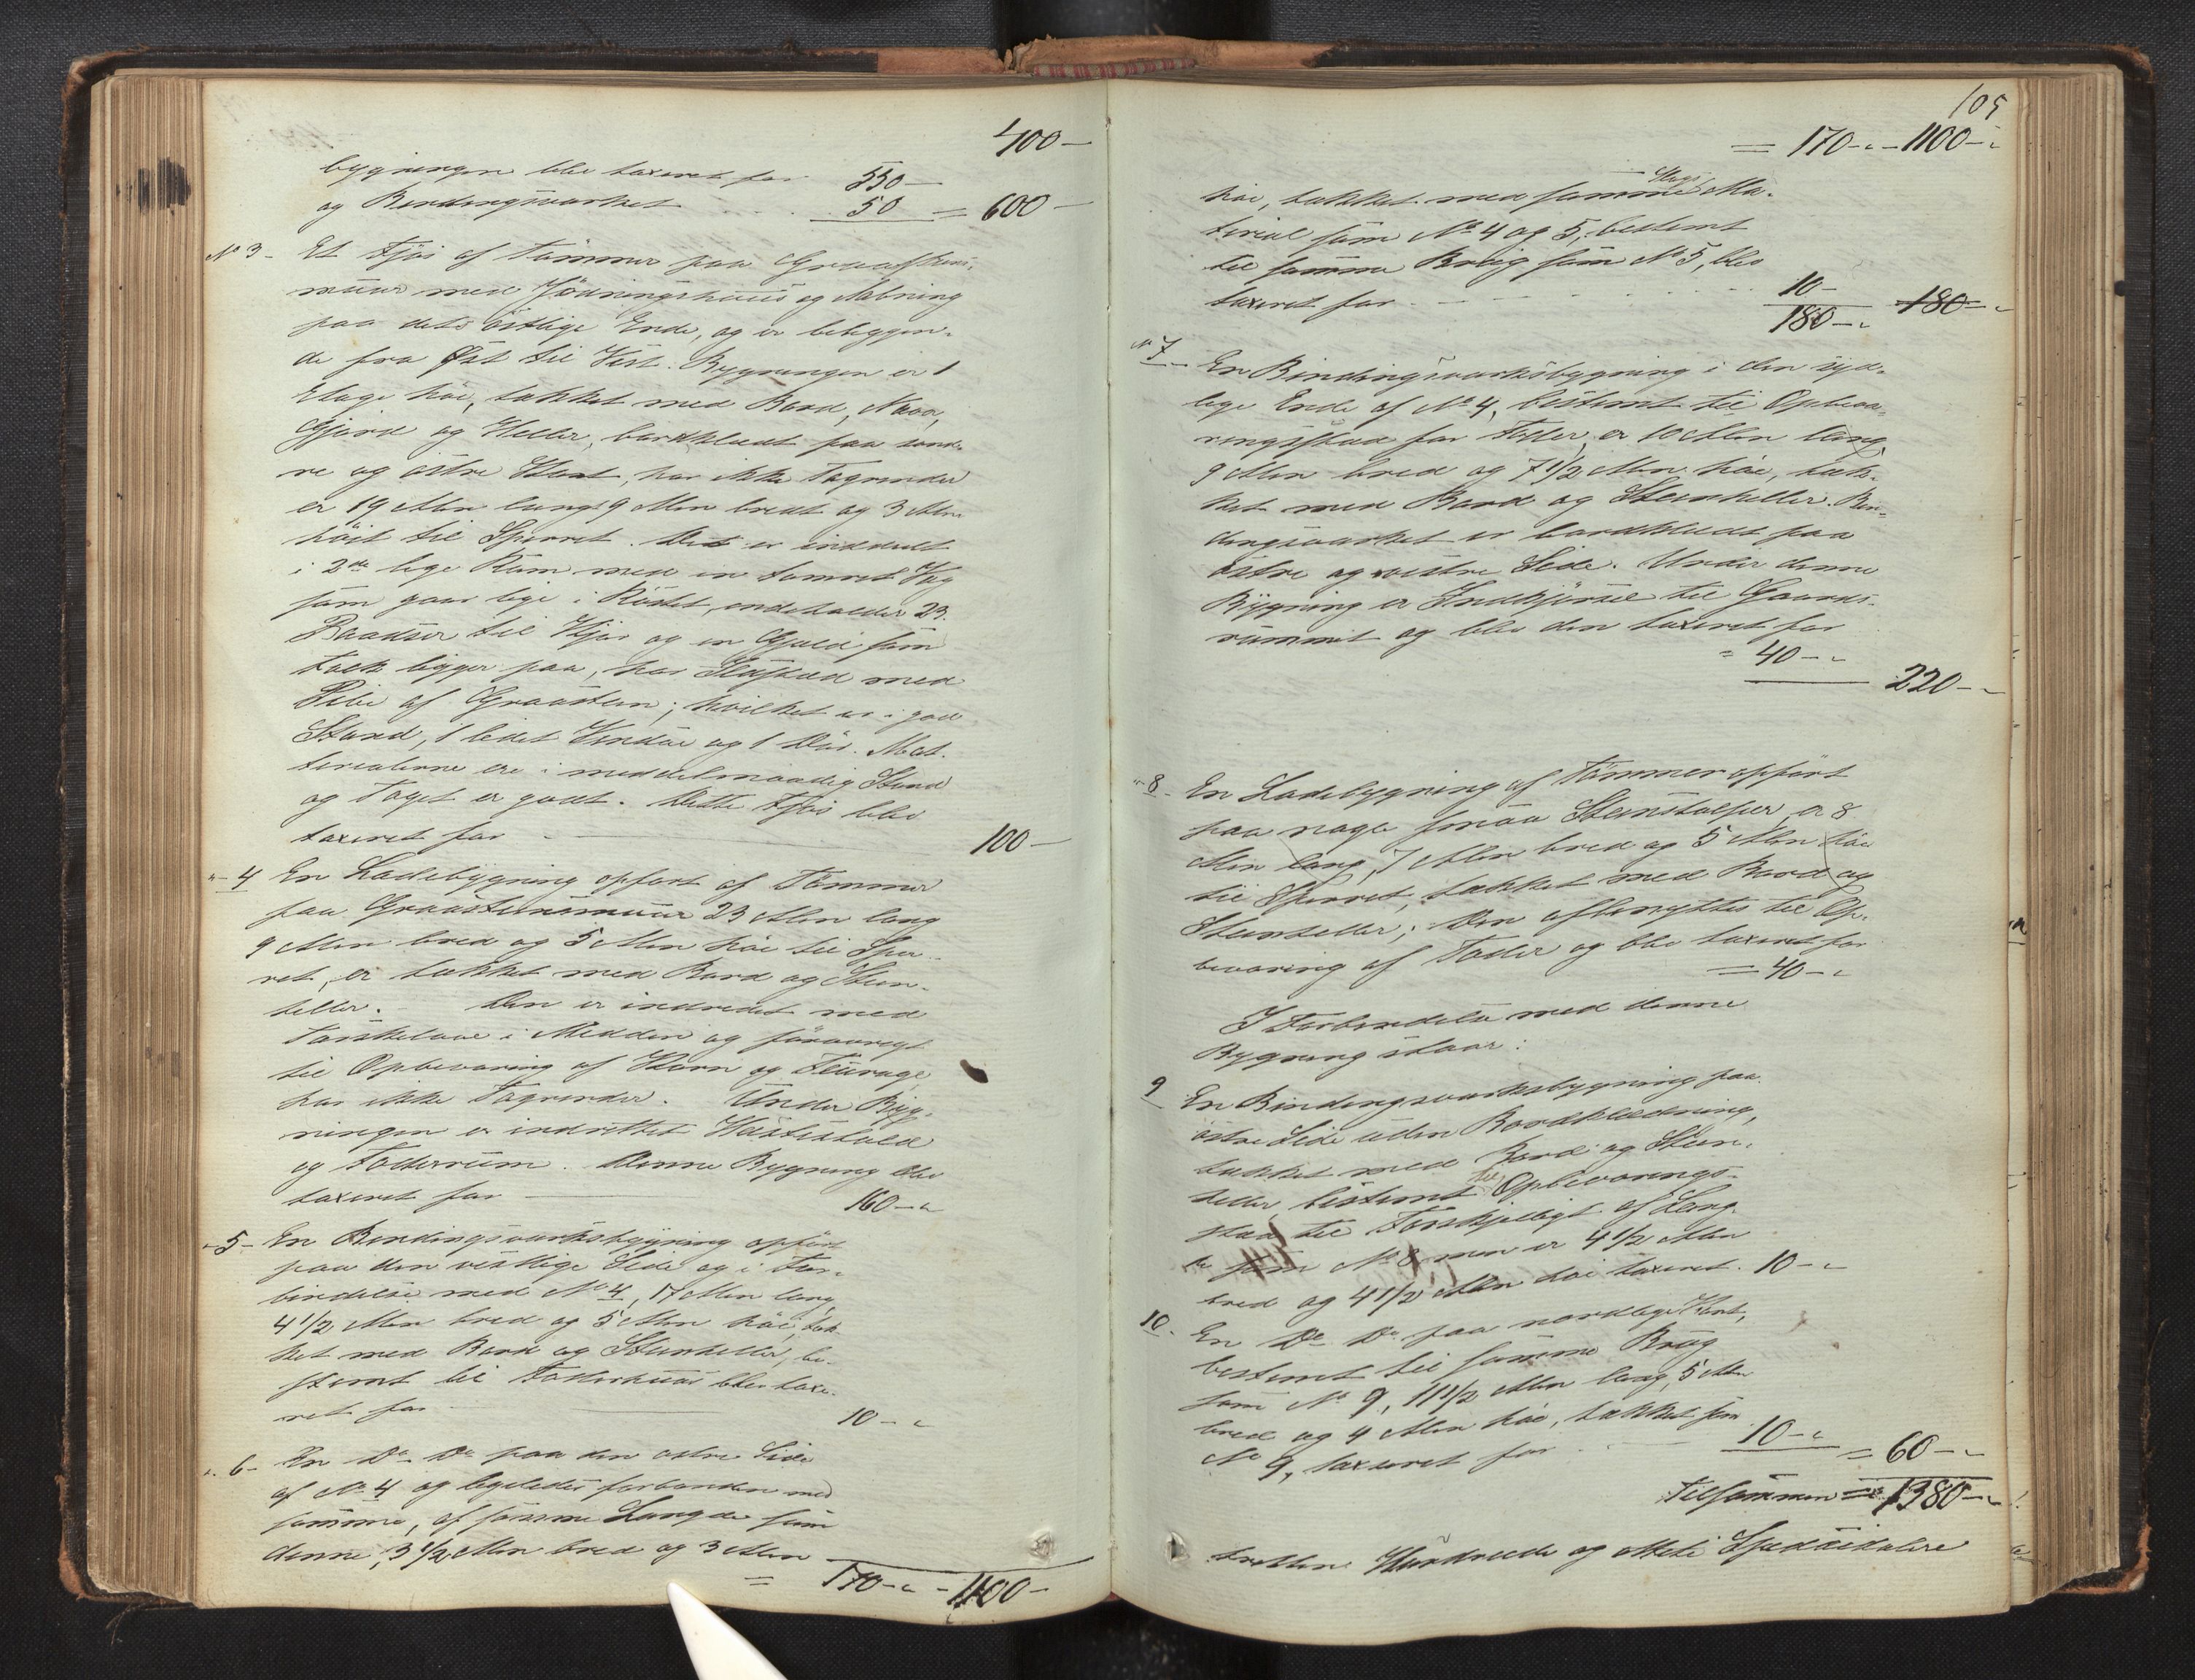 400 –
bygningen blev taxeret for 550 –
og Bindingsværket . . . . 50 = 600 –
No 3 – Et Fjøs af Tømmer paa Graasteens-
muur med Gjødningshuus og Aabning
paa dets østlige Ende, og er beliggen-
de fra Øst til Vest. Bygningen er 1
Etage høi, tækket med Bord, Næver,
og Heller, bordklædt paa sønd-
re og østre Kant, har ikke Tagrender
er 19 Alen langt 9 Alen bredt og 3 Alen
høit til Sperret. Det er inddeelt
i 2de lige Rum med en tømret Væg
som gaar lige i Røstet, indeholder 23
Baadser til Kjør og en som
ligger paa, har Ildsted med
Pibe af Graasteen, hvilket er i god
Stand, 1 Vindue og 1 Dør. Mat-
terialerne ere i middelmaadig Stand
og Taget er godt. Dette Fjøs blev
taxeret for 100 –
" 4 En Ladebygning opført af Tømmer
paa Graasteensmuur 23 Alen lang
9 Alen bred og 5 Alen høi til Sper-
ret, er tækket med Bord og Steen-
heller. Den er indredet med
Tærskelaave i Midden og forøvrigt
til Opbevaring af Korn og Fourage,
har ikke Tagrender. Under Byg-
ningen er indrettet Hestestald
og Foderrum. Denne Bygning blev
taxeret for 160 – "
" 5 – En Bindingsværksbygning opført
paa den vestlige Side og i For-
bindelse med No 4, 17 Alen lang
4 1/2 Alen bred og 5 Alen høi, tæk-
ket med Bord og Steenheller, be-
stemt til Foderhuus blev taxe-
ret for 10 – "
" 6 – En Do Do paa den østre Side
af No 4 og ligeledes forbunden med
samme, af samme Længde som
denne, 3 1/2 Alen bred og 3 Alen
= 170 – " – 1100 –
105
= 170 – " – 1100 – "
høi, tækket med samme Slags Ma-
terial som No 4 og 5, bestemt
til samme Brug som No 5, blev
taxeret for . . . . 10 –
180 – " 180 – "
No 7 – En Bindingsværksbygning i den syd-
lige Ende af No 4, bestemt til Opbeva-
ringssted for Foder, er 10 Alen lang
9 Alen bred og 7 1/2 Alen høi, tæk-
ket med Bord og Steenheller. Bin-
dingsværket er bordklædt paa
østre og vestre Side. Under denne
Bygning er Indkjørsel til Gaards-
rummet og blev den taxeret for
= 40 – "
220 – "
" 8 – En Ladebygning af Tømmer opført
paa nogle smaa Steenstolper, er 8
Alen lang, 7 Alen bred og 5 Alen høi
til Sperret, tækket med Bord og
Steenheller; Den afbenyttes til Op-
bevaring af Foder og blev taxeret for
= 40 – "
I Forbindelse med denne
Bygning staar:
9 En Bindingsværksbygning paa
østre Side uden Bordklædning,
tækket med Bord og Steen-
heller, bestemt til Opbevarings-
sted til Forskjelligt af Læng-
de som No 8 men er 4 1/2 Alen
bred og 4 1/2 Alen høi taxeret. 10 – "
10. En Do Do paa nordlige Kant,
bestemt til samme Brug
som No 9, 11 1/2 Alen lang, 5 Alen
bred og 4 Alen høi, tækket som
No 9, taxeret for . . . 10 – " = 60 – "
Tilsammen = 1380 – "
tretten Hundrede og otteti Speciedalere